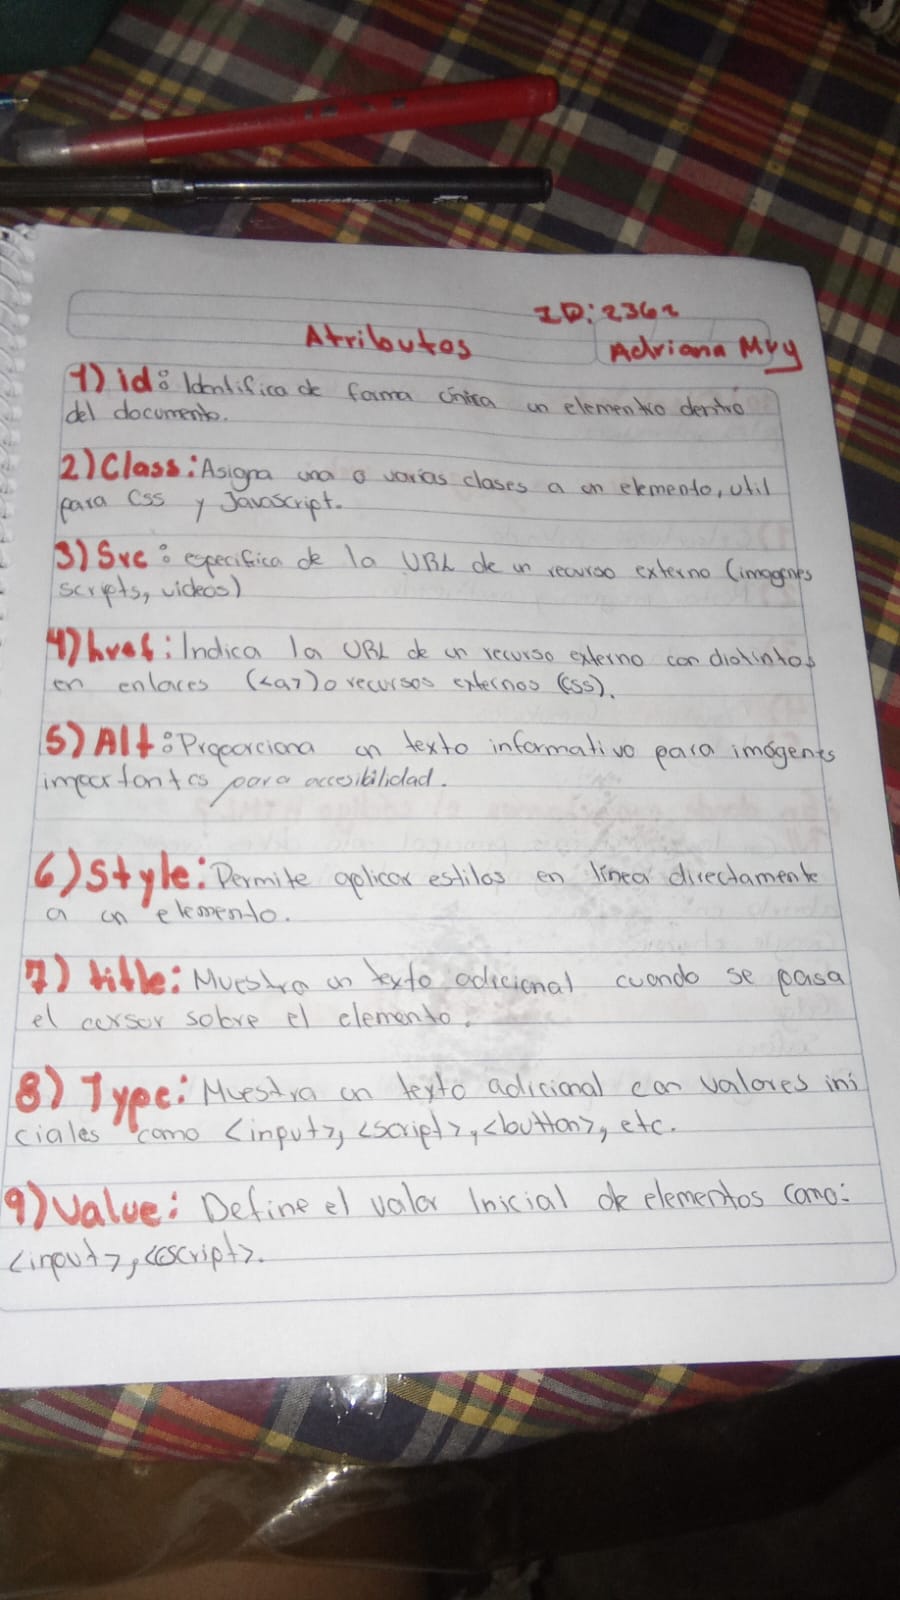 ID: 2362
Atributos
Adriana Mry
1) id: Identifica de forma única un elemento dentro
del documento.
2) Class: Asigna una o varias clases a un elemento, util
para Css y Javascript.
3) Src: especifica de la URL de un recurso externo (imagenes
scripts, videos)
4) href: Indica la URL de un recurso externo con distintos
en enlaces (<a>) o recursos externos (CSS).
5) Alt: Proporciona un texto informativo para imágenes
importantes para accesibilidad.
6) Style: Permite aplicar estilos en línea directamente
a un elemento.
7) title: Muestra un texto adicional cuando se pasa
el cursor sobre el elemento.
8) Type: Muestra un texto adicional con valores ini
ciales como <input>, <script>, <button>, etc.
9) Value: Define el valor Inicial de elementos como:
<input>, <script>.